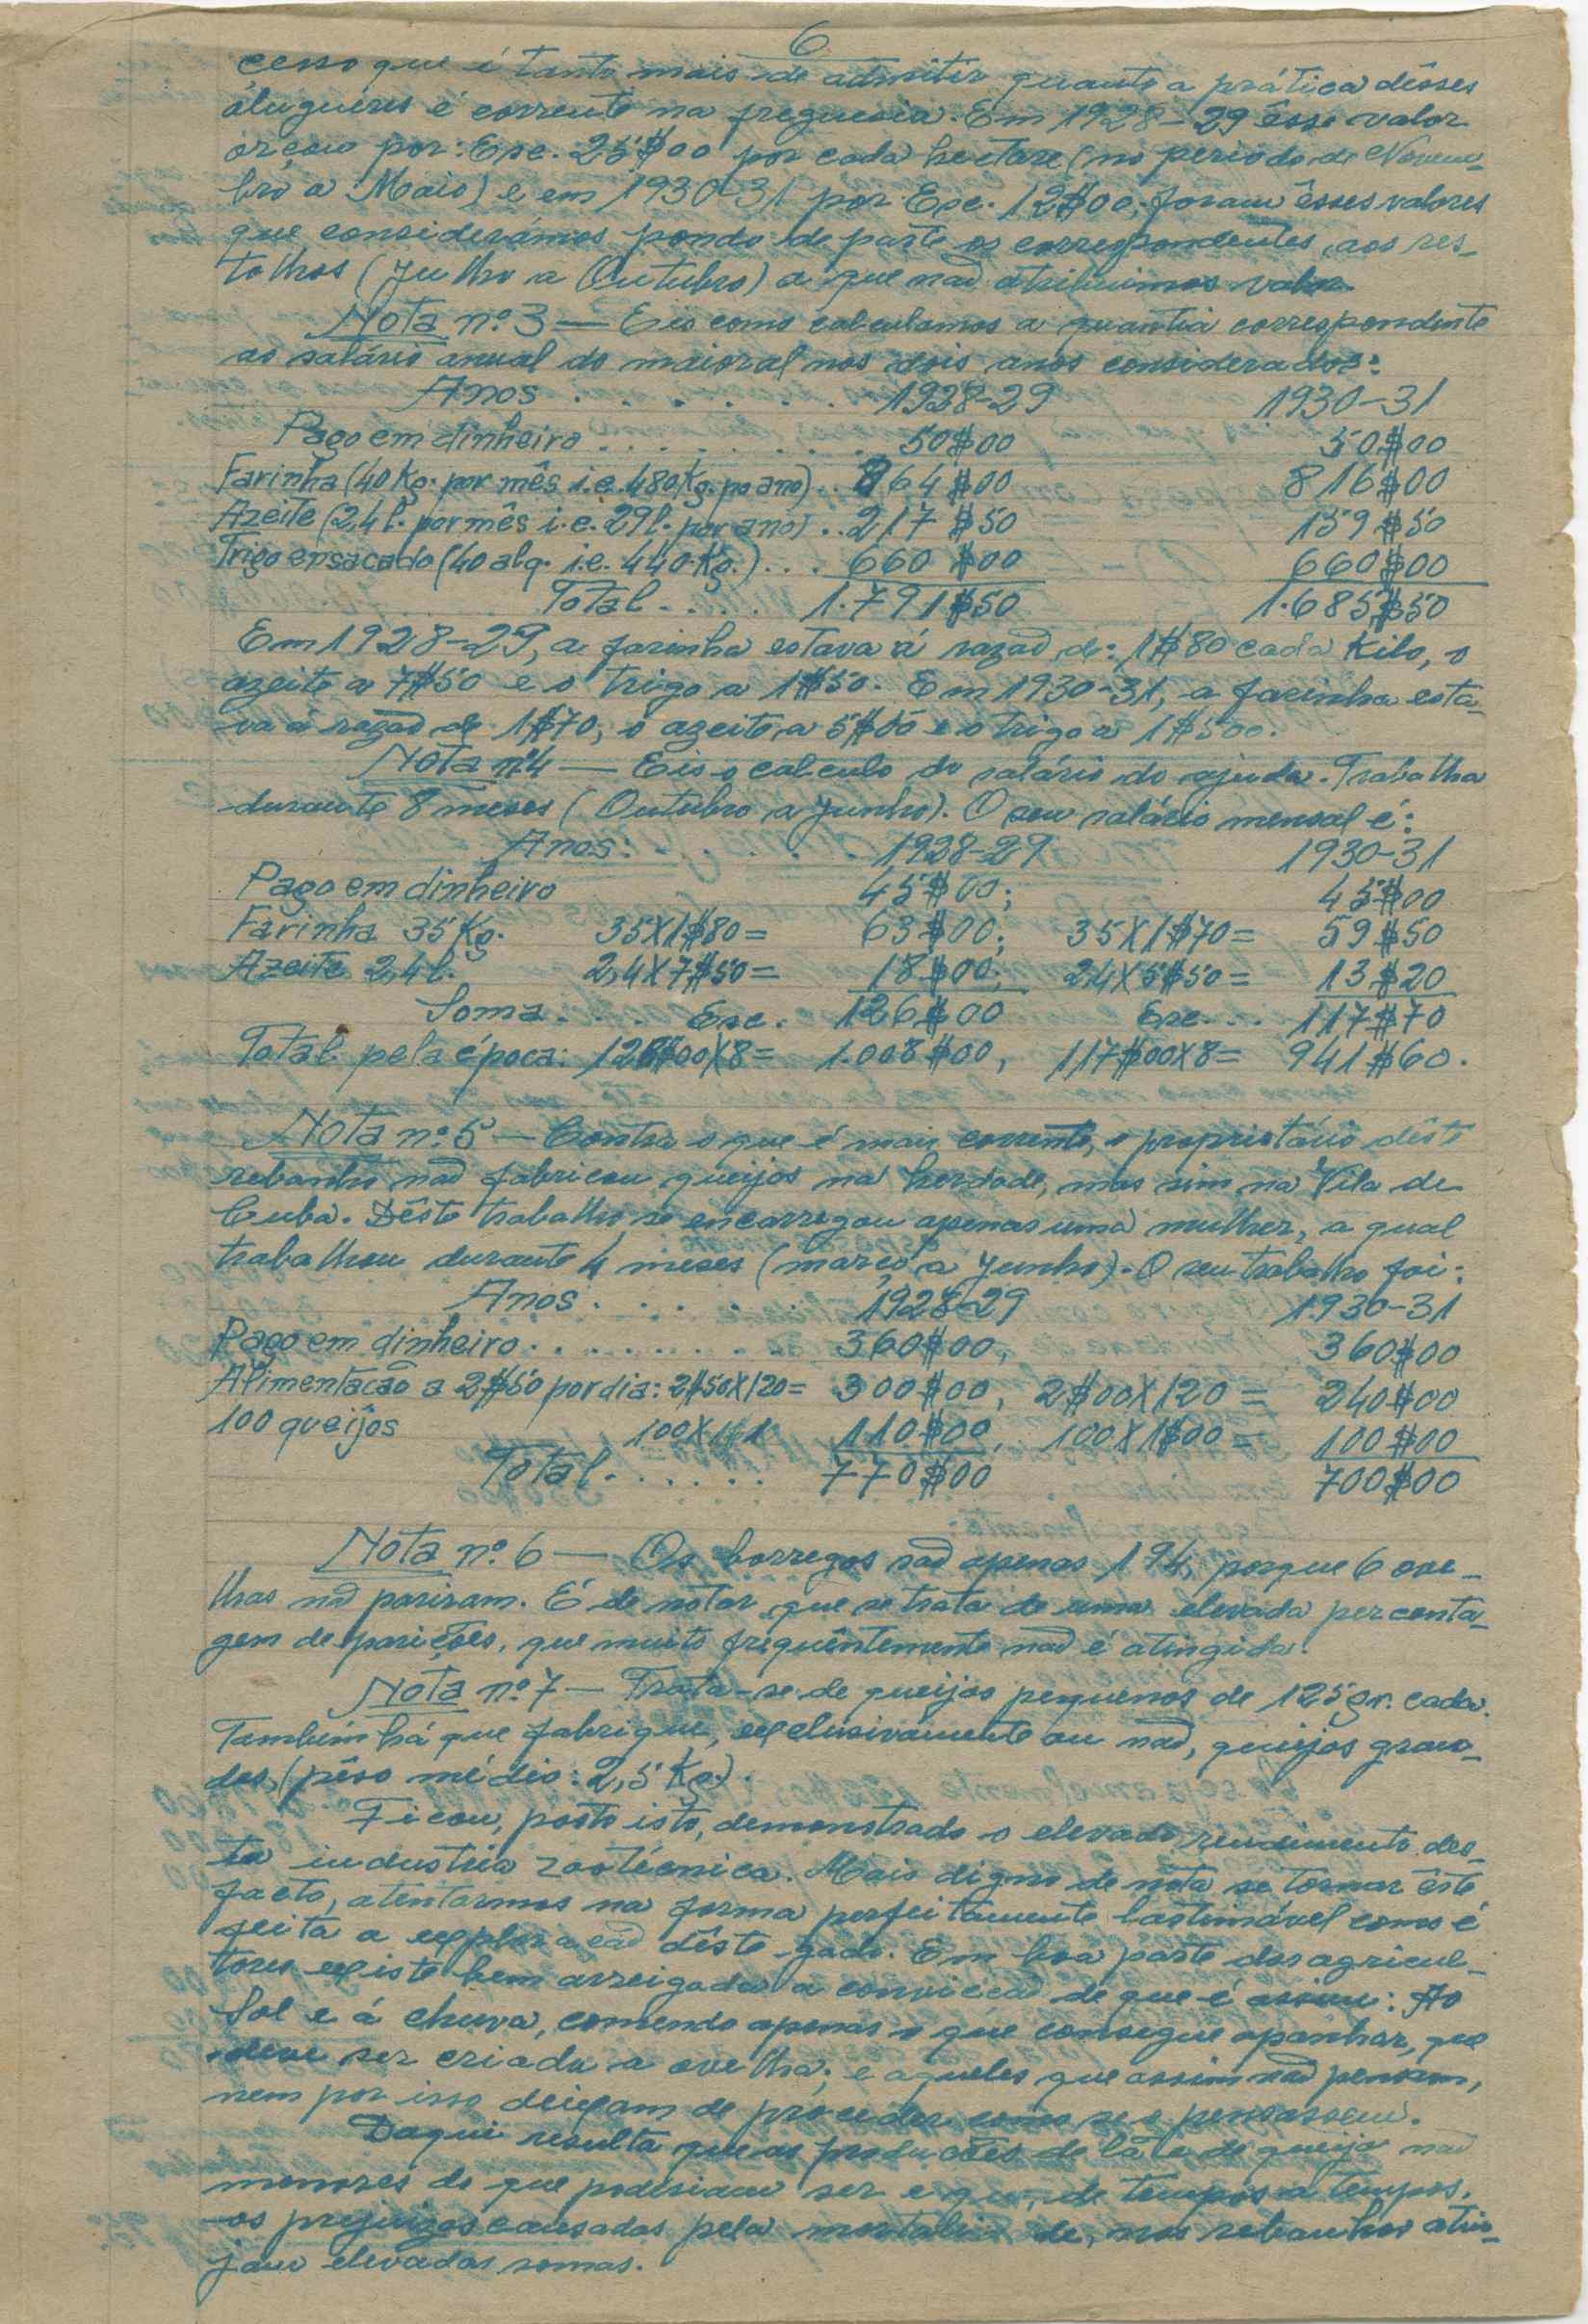 6
cesso que é tanto mais de admitir quanto a prática dêsses
alugueres é corrente na freguesia. Em 1928-29 êsse valor
orçou por: Esc. 25$00 por cada hectare (no periodo de Novem-
bro a Maio) e em 1930-31 por Esc. 12$00; foram êsses valores
que considerámos pondo de parte os correspondentes aos res-
tolhos (Julho a Outubro) a que não atribuimos valor.
Nota nº 3 — Eis como calculamos a quantia correspondente
ao salário anual do maioral nos dois anos considerados:
Anos . . . . . . . 1928-29 1930-31
Pago em dinheiro . . . . . . . 50$00 50$00
Farinha (40 Kg. por mês i.e. 480 Kg. po ano) . . 864$00 816$00
Azeite (2,4 l. por mês i.e. 29 l. por ano) . . 217$50 159$50
Trigo ensacado (40 alq. i.e. 440 Kg.) . . . 660$00 660$00
Total . . . . 1.791$50 1.685$50
Em 1928-29, a farinha estava á razão de: 1$80 cada Kilo, o
azeite a 7$50 e o trigo a 1$50. Em 1930-31, a farinha esta-
va á razão de 1$70, o azeite a 5$50 e o trigo a 1$500.
Nota nº 4 — Eis o calculo do salário do ajuda. Trabalha
durante 8 meses (Outubro a Junho). O seu salário mensal é:
Anos: . . . . . 1928-29 1930-31
Pago em dinheiro 45$00; 45$00
Farinha 35 Kg. 35X1$80= 63$00; 35X1$70= 59$50
Azeite 2,4 l. 2,4X7$50= 18$00; 2,4X5$50= 13$20
Soma . . . . Esc. 126$00 Esc. . . 117$70
Total pela época: 126$00X8= 1.008$00, 117$00X8= 941$60.
Nota nº 5 — Contra o que é mais corrente, o proprietário dêste
rebanho não fabricou queijos na herdade, mas sim na Vila de
Cuba. Dêste trabalho se encarregou apenas uma mulher, a qual
trabalhou durante 4 meses (março a Junho). O seu trabalho foi:
Anos . . . . . . 1928-29 1.930-31
Pago em dinheiro . . . . . . . . . 360$00, 360$00
Alimentação a 2$50 por dia: 2$50X120= 300$00, 2$00X120= 240$00
100 queijos 100X1$1 110$00, 100X1$00= 100$00
Total . . . . . . 770$00 700$00
Nota nº 6 — Os borregos são apenas 194, porque 6 ove-
lhas não pariram. É de notar que se trata de uma elevada percenta-
gem de parições, que muito freqüentemente não é atingida.
Nota nº 7 — Trata-se de queijos pequenos de 125 gr. cada.
Também há que fabrique, exclusivamente ou não, queijos gran-
des, (pêso médio: 2,5 Kg.).
Ficou, posto isto, demonstrado o elevado rendimento des-
ta industria zootécnica. Mais digno de nota se tornar êste
facto, atentarmos na forma perfeitamente lastimável como é
feita a exploração dêste gado. Em boa parte dos agricul-
tores existe bem arreigada a convicção de que é assim: Ao
Sol e á chuva, comendo apenas o que consegue apanhar, que
deve ser criada a ovelha; e aqueles que assim não pensam,
nem por isso deixam de proceder como se o pensassem.
Daqui resulta que as produções de lã e de queijo não
menores do que poderiam ser e que, de tempos a tempos,
os prejuizos causados pela mortalidade, nos rebanhos atin-
jam elevadas somas.